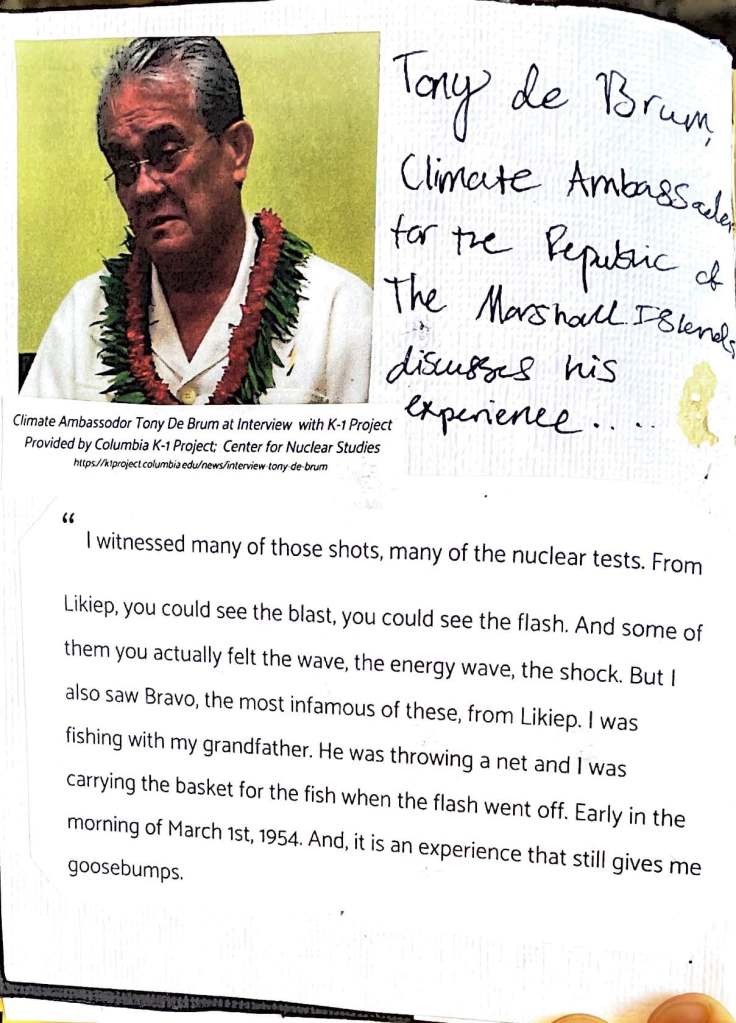 Tony de Brum,
Climate Ambassader
for the Republic of
The Marshall Islands
discusses his
experience....
Climate Ambassodor Tony De Brum at Interview with K-1 Project
Provided by Columbia K-1 Project; Center for Nuclear Studies
https://k1project.columbia.edu/news/interview-tony-de-brum
“
I witnessed many of those shots, many of the nuclear tests. From
Likiep, you could see the blast, you could see the flash. And some of
them you actually felt the wave, the energy wave, the shock. But I
also saw Bravo, the most infamous of these, from Likiep. I was
fishing with my grandfather. He was throwing a net and I was
carrying the basket for the fish when the flash went off. Early in the
morning of March 1st, 1954. And, it is an experience that still gives me
goosebumps.